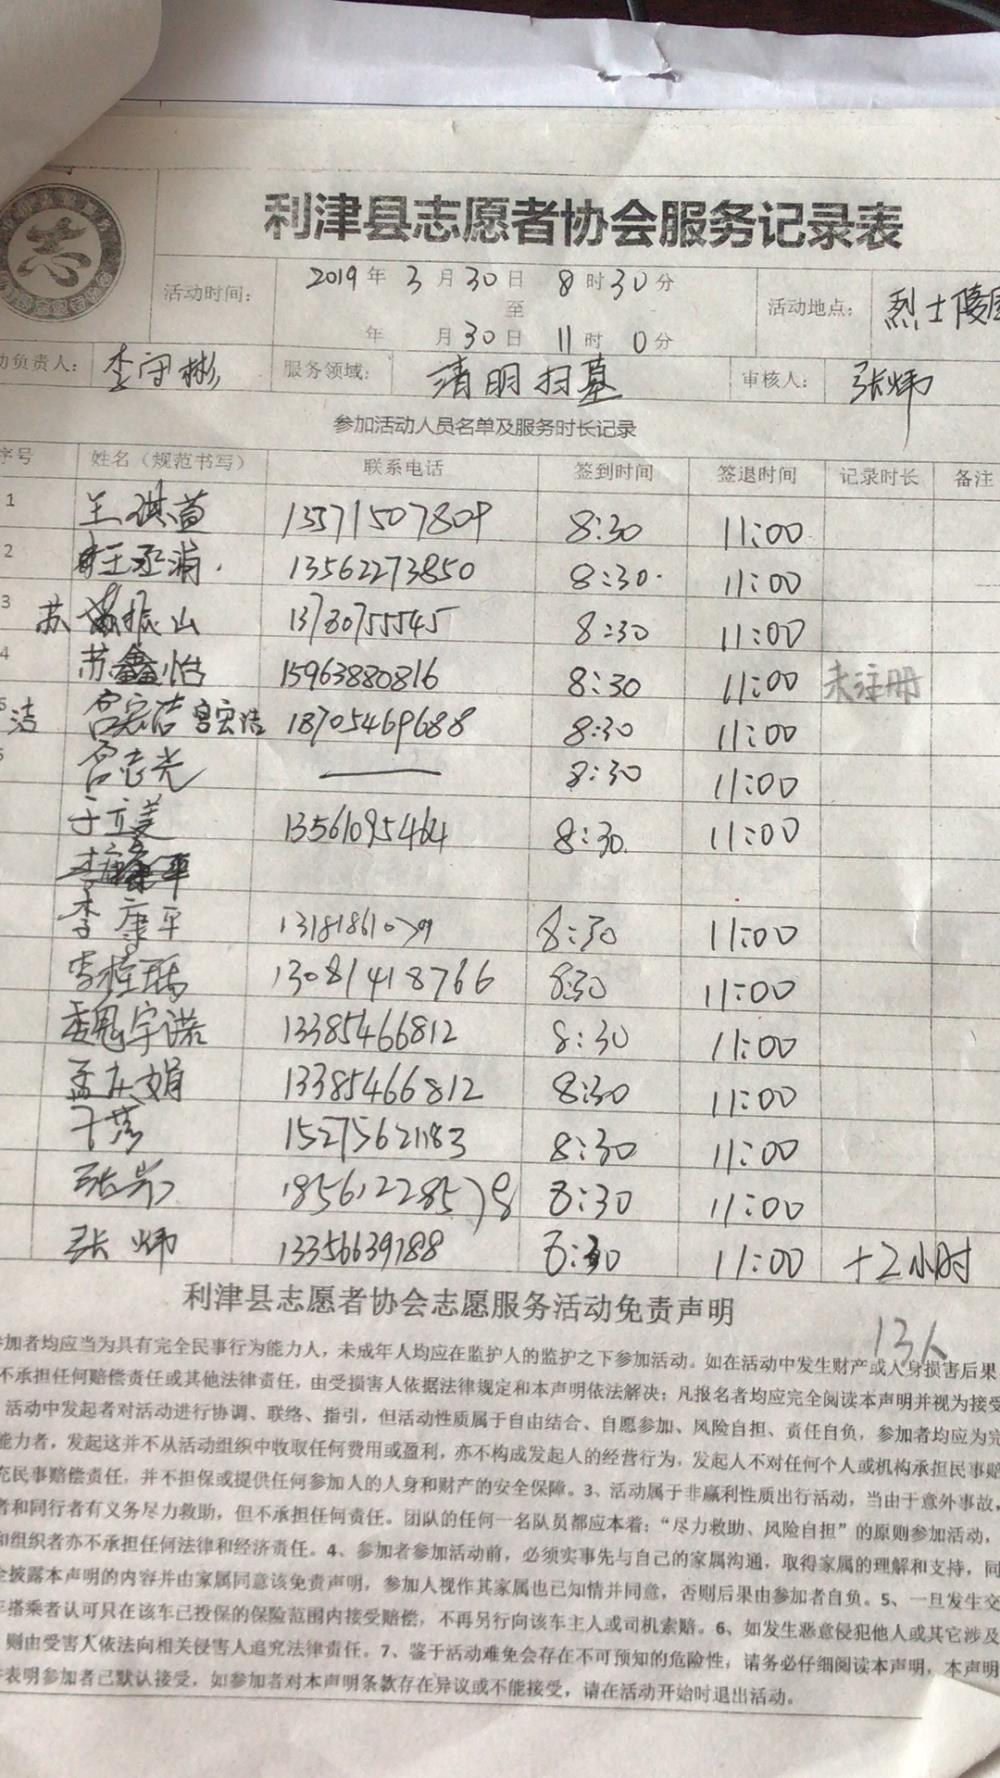 利津县志愿者协会服务记录表
志
活动时间： 2019年 3月30日 8时30分
至
年 月30日 11时 0分
活动地点： 烈士陵园
动负责人： 李守彬 服务领域： 清明扫墓 审核人： 张炜
参加活动人员名单及服务时长记录
序号 姓名（规范书写） 联系电话 签到时间 签退时间 记录时长 备注
1 王淇萱 13371507809 8:30 11:00
2 13562273850 8:30 11:00
3 苏振山 13780755545 8:30 11:00
4 苏鑫怡 15963880816 8:30 11:00 未注册
洁 宫宏洁 宫宏洁 18705469688 8:30 11:00
宫志光 — 8:30 11:00
于立美 13561095464 8:30 11:00
李康平 8:30 11:00
13081418766 8:30 11:00
魏宇诺 13385466812 8:30 11:00
孟庆娟 13385466812 8:30 11:00
15275621183 8:30 11:00
18561228578 8:30 11:00
张炜 13356639188 8:30 11:00 +2小时
利津县志愿者协会志愿服务活动免责声明
13人
参加者均应当为具有完全民事行为能力人，未成年人均应在监护人的监护之下参加活动。如在活动中发生财产或人身损害后果
不承担任何赔偿责任或其他法律责任，由受损害人依据法律规定和本声明依法解决；凡报名者均应完全阅读本声明并视为接受
活动中发起者对活动进行协调、联络、指引，但活动性质属于自由结合、自愿参加、风险自担、责任自负，参加者均应为完
能力者，发起这并不从活动组织中收取任何费用或盈利，亦不构成发起人的经营行为，发起人不对任何个人或机构承担民事赔
充民事赔偿责任，并不担保或提供任何参加人的人身和财产的安全保障。3、活动属于非赢利性质出行活动，当由于意外事故，
者和同行者有义务尽力救助，但不承担任何责任。团队的任何一名队员都应本着：“尽力救助、风险自担”的原则参加活动，
和组织者亦不承担任何法律和经济责任。4、参加者参加活动前，必须实事先与自己的家属沟通，取得家属的理解和支持，同
全披露本声明的内容并由家属同意该免责声明，参加人视作其家属也已知情并同意，否则后果由参加者自负。5、一旦发生交
车搭乘者认可只在该车已投保的保险范围内接受赔偿，不再另行向该车主人或司机索赔。6、如发生恶意侵犯他人或其它涉及
则由受害人依法向相关侵害人追究法律责任。7、鉴于活动难免会存在不可预知的危险性，请务必仔细阅读本声明，本声明
表明参加者已默认接受，如参加者对本声明条款存在异议或不能接受，请在活动开始时退出活动。